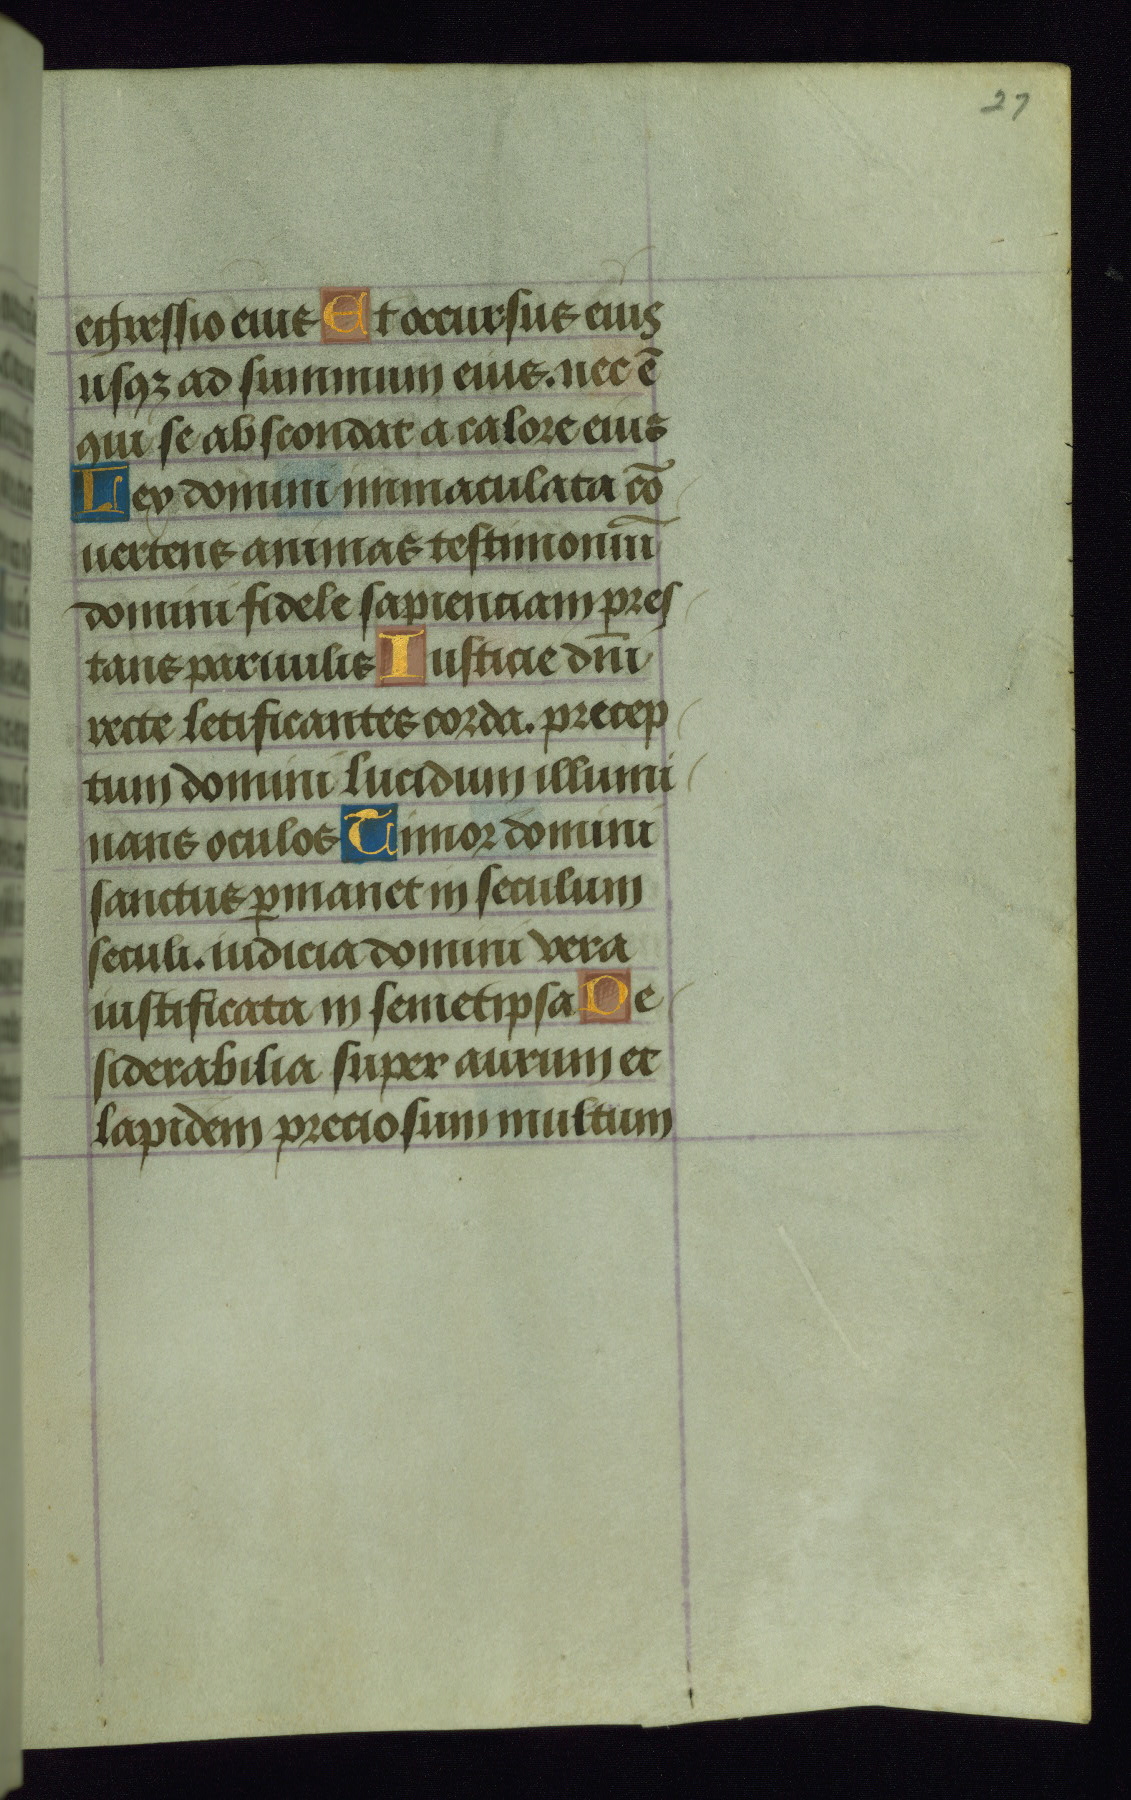 27
egressio eius Et occursus eius
usqꝫ ad summum eius. nec ē
qui se abscondat a calore eius
Lex domini immaculata cō
uertens animas testimoniū
domini fidele sapienciam pres
tans paruulis Iusticie dn̄i
recte letificantes corda. precep
tum domini lucidum illumi
nans oculos Timor domini
sanctus ꝑmanet in seculum
seculi. iudicia domini vera
iustificata in semetipsa De
siderabilia super aurum et
lapidem preciosum multum